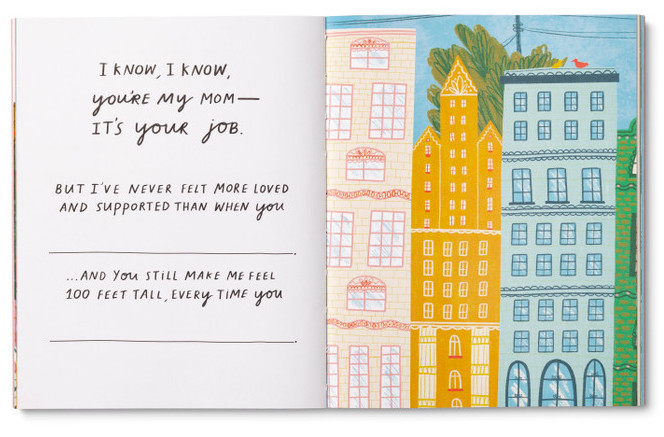 I KNOW, I KNOW,
you're my mom—
IT'S your job.
BUT I'VE NEVER FELT MORE LOVED
AND SUPPORTED THAN WHEN you
.
...AND you STILL MAKE ME FEEL
100 FEET TALL, EVERy TIME you
.